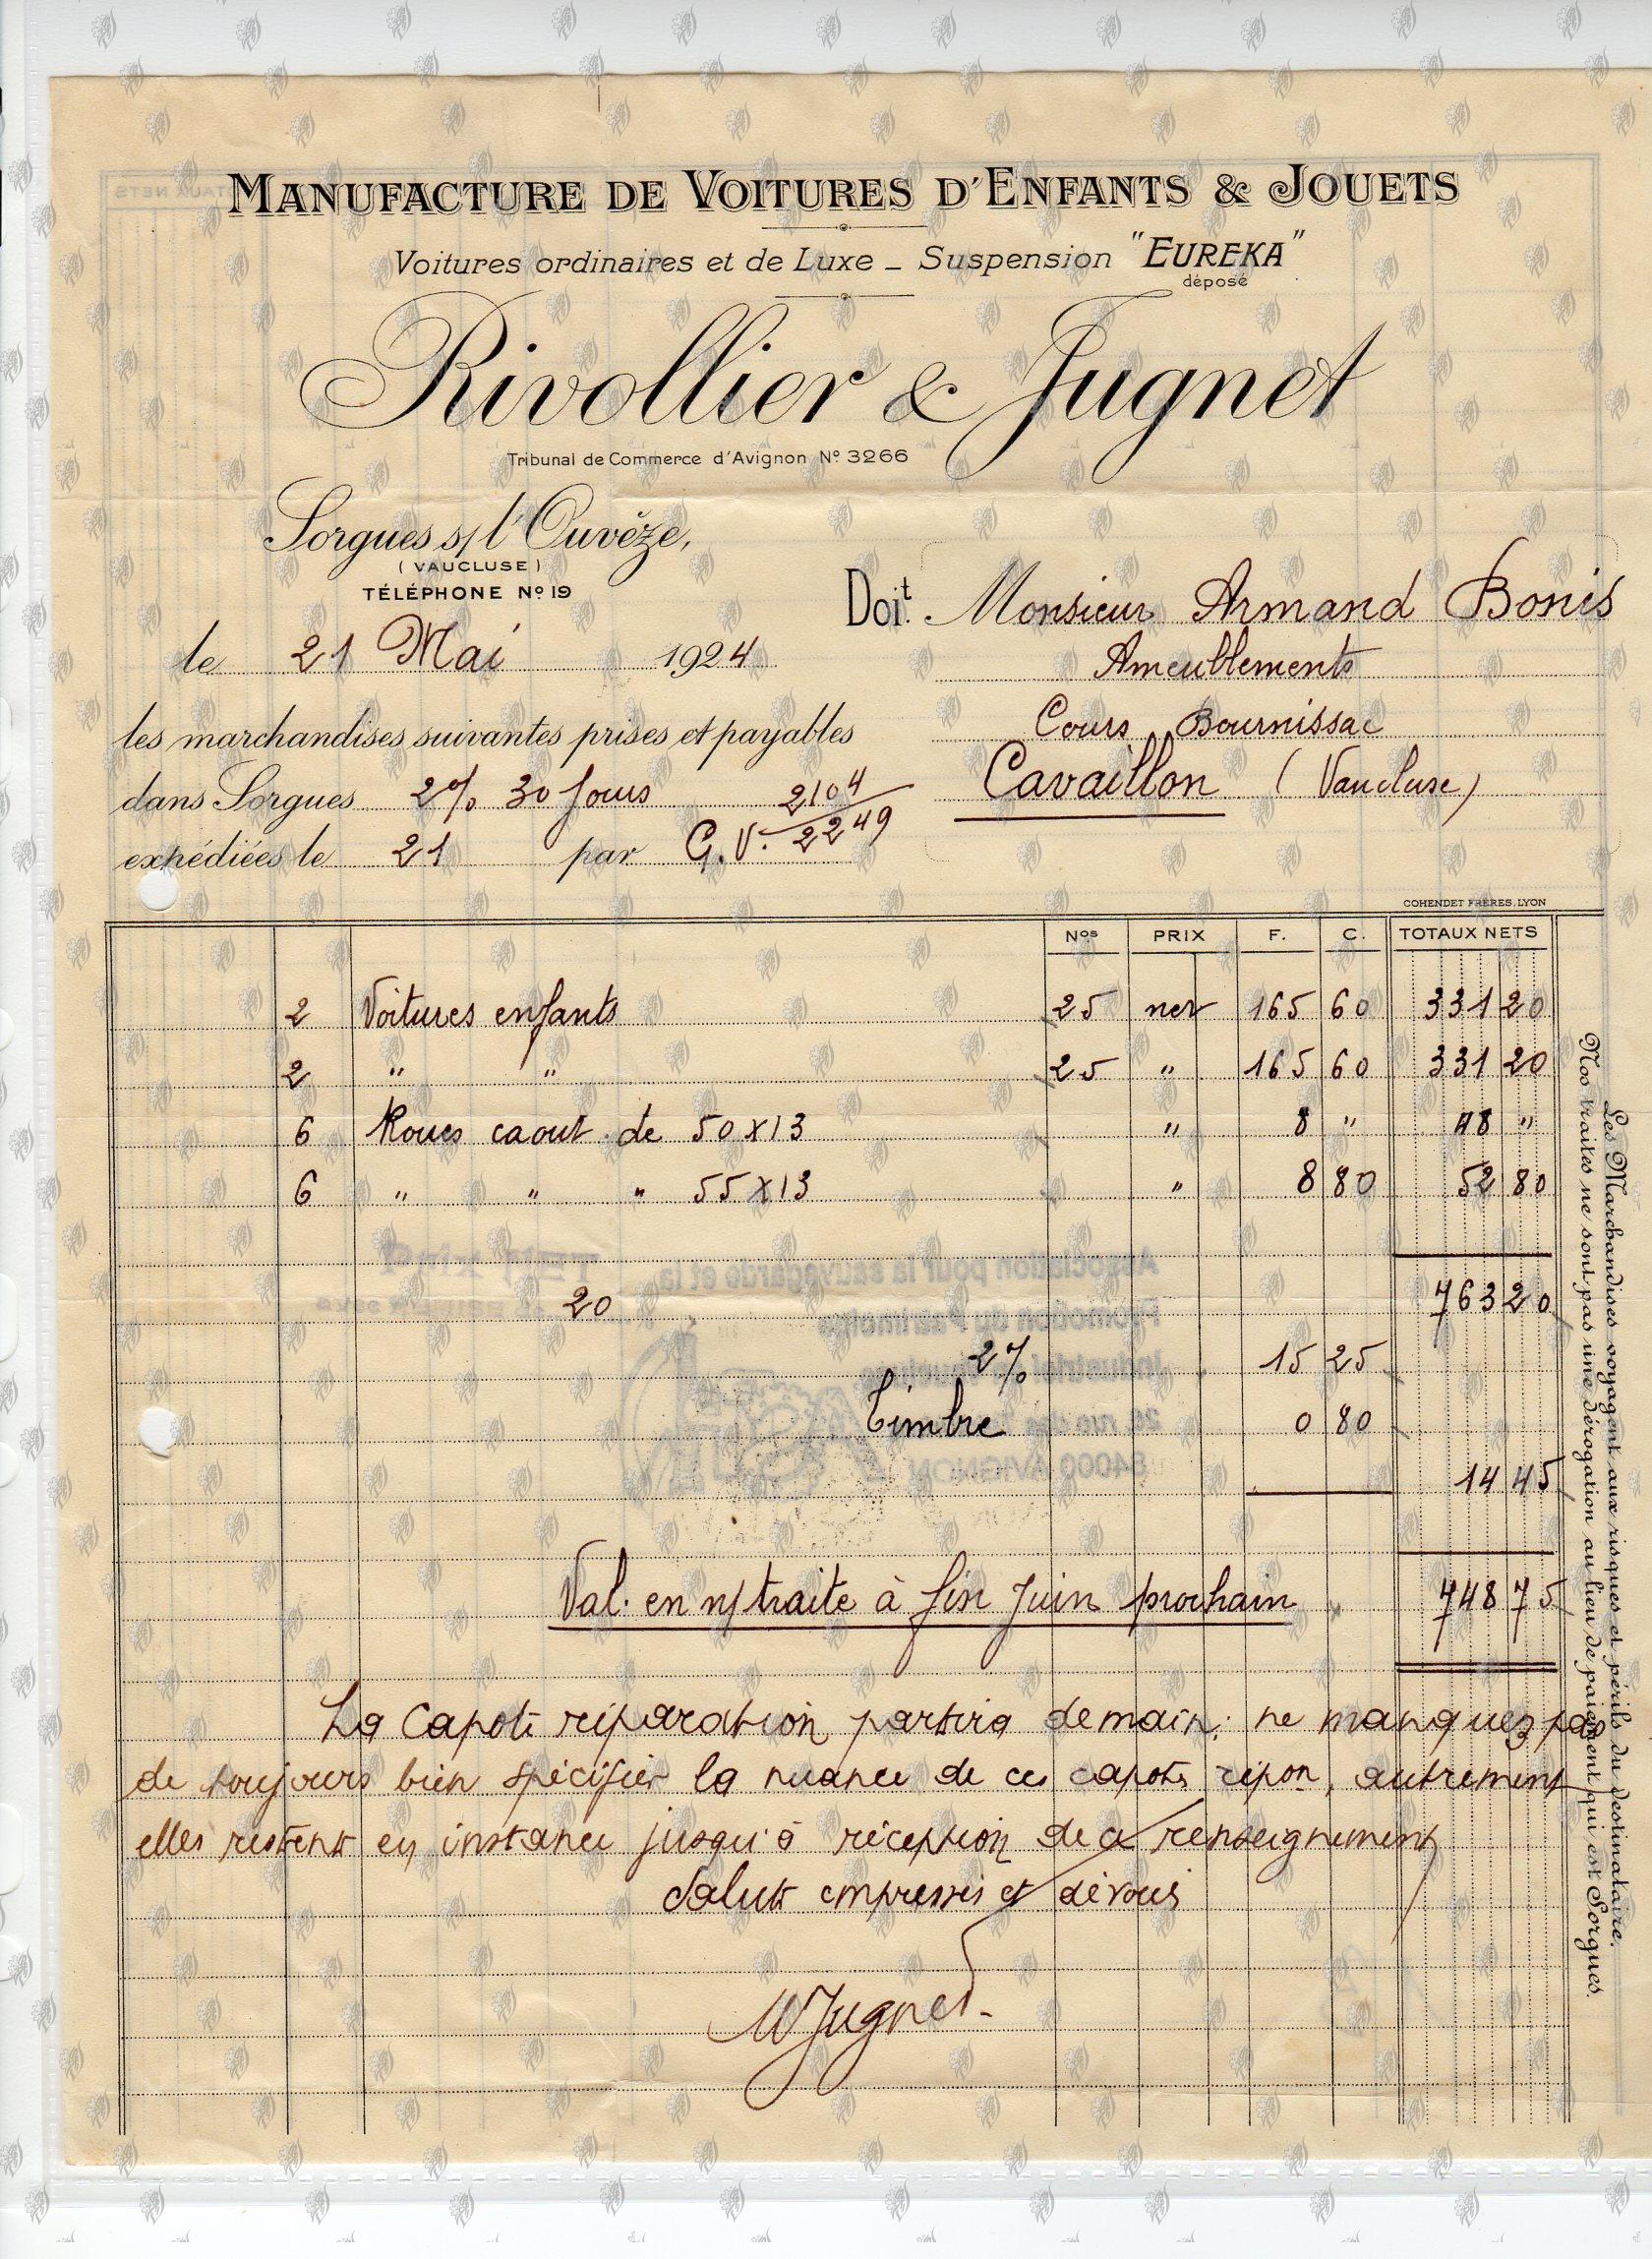 MANUFACTURE DE VOITURES D'ENFANTS & JOUETS
Voitures ordinaires et de Luxe _ Suspension "EUREKA"
déposé
Rivollier & Jugnet
Tribunal de Commerce d'Avignon Nº 3266
Sorgues s/ l'Ouvèze,
(VAUCLUSE)
TÉLÉPHONE Nº 19
le 21 Mai 1924
Doit. Monsieur Armand Bonis
Ameublements
Cours Bournissac
Cavaillon (Vaucluse)
les marchandises suivantes prises et payables
dans Sorgues 2% 30 Jours
expédiées le 21 par G.V. 2104
2249
COHENDET FRÈRES, LYON
Nos PRIX F. C. TOTAUX NETS
2 Voitures enfants 25 net 165 60 331 20
2 " " 25 " 165 60 331 20
6 Roues caout. de 50 x 13 " 8 " 48 "
6 " " " 55 x 13 " 8 80 52 80
20 763 20
2% 15 25
Timbre 0 80
14 45
Val. en n/ traite à fin Juin prochain 748 75
La Capote réparation partira demain; ne manquez pas
de toujours bien spécifier la nuance de ces capotes répon, autrement
elles restent en instance jusqu'à réception de ce renseignement
Saluts empressés et dévoués
Jugnet
Les Marchandises voyagent aux risques et périls du destinataire.
Nos traites ne sont pas une dérogation au lieu de paiement qui est Sorgues.
Association pour la sauvegarde et la
Promotion du Patrimoine
Industriel
84000 AVIGNON